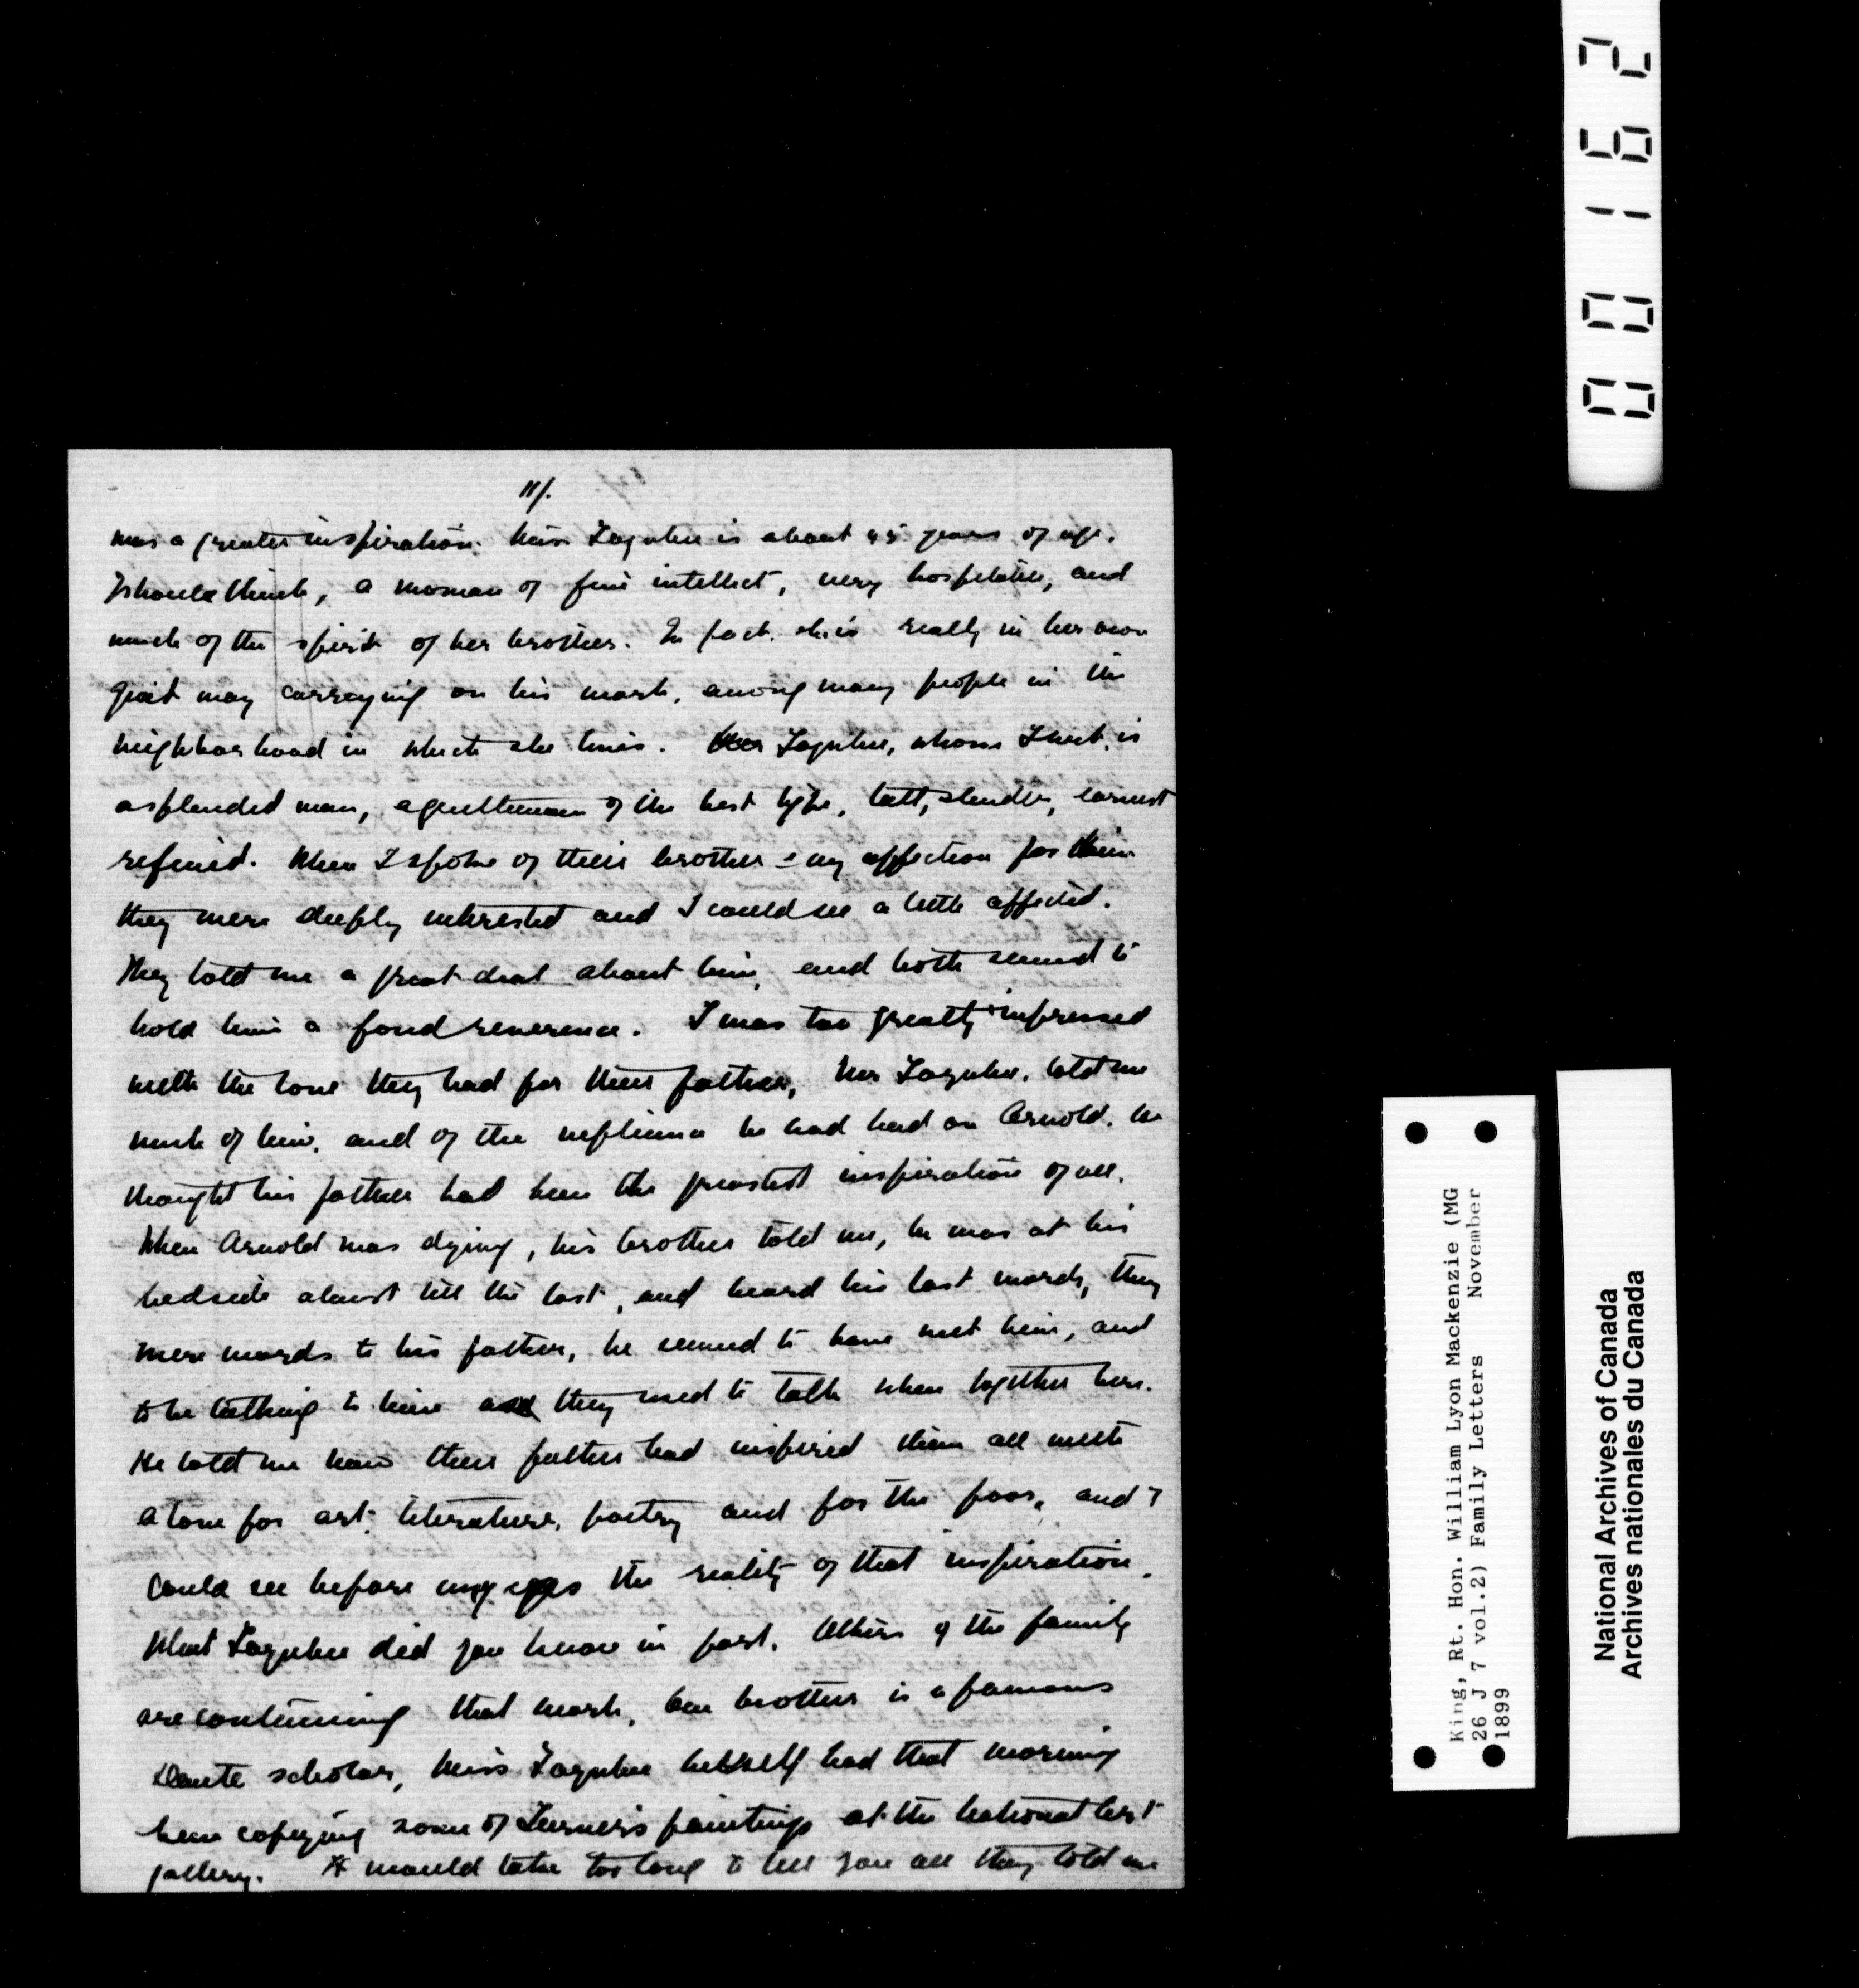 11/.
was a greater inspiration. Miss Toynbee is about 45 years of age.
I should think, a woman of fine intellect, very hospitable, and
much of the spirit of her brother. In fact, she is really in her own
quiet way carrying on his work, among many people in the
neighborhood in which she lives. Toynbee, whom I met, is
a splendid man, a gentleman of the best type, tall, slender, earnest
refined. When I spoke of their brother & my affection for him
they were deeply interested and I could see a little affected.
They told me a great deal about him, and both seemed to
hold him a fond reverence. I was too greatly impressed
with the love they had for their father, Mr Toynbee, told me
much of him, and of the influence he had had on Arnold. he
thought his father had been the greatest inspiration of all.
When Arnold was dying, his brother told me, he was at his
bedside almost till the last, and heard his last words, they
were words to his father, he seemed to have met him, and
to be talking to him as they used to talk when together here.
He told me how their father had inspired them all with
a love for art, literature, poetry and for the poor, and I
could see before my eyes the reality of that inspiration.
What Toynbee did you know in part. Others of the family
are continuing that work, one brother is a famous
Dante scholar, Miss Toynbee herself had that morning
been copying some of Turner's paintings at the National Art
gallery. It would take too long to tell you all they told me
00162
King, Rt. Hon. William Lyon Mackenzie (MG
26 J 7 vol.2) Family Letters November
1899
National Archives of Canada
Archives nationales du Canada